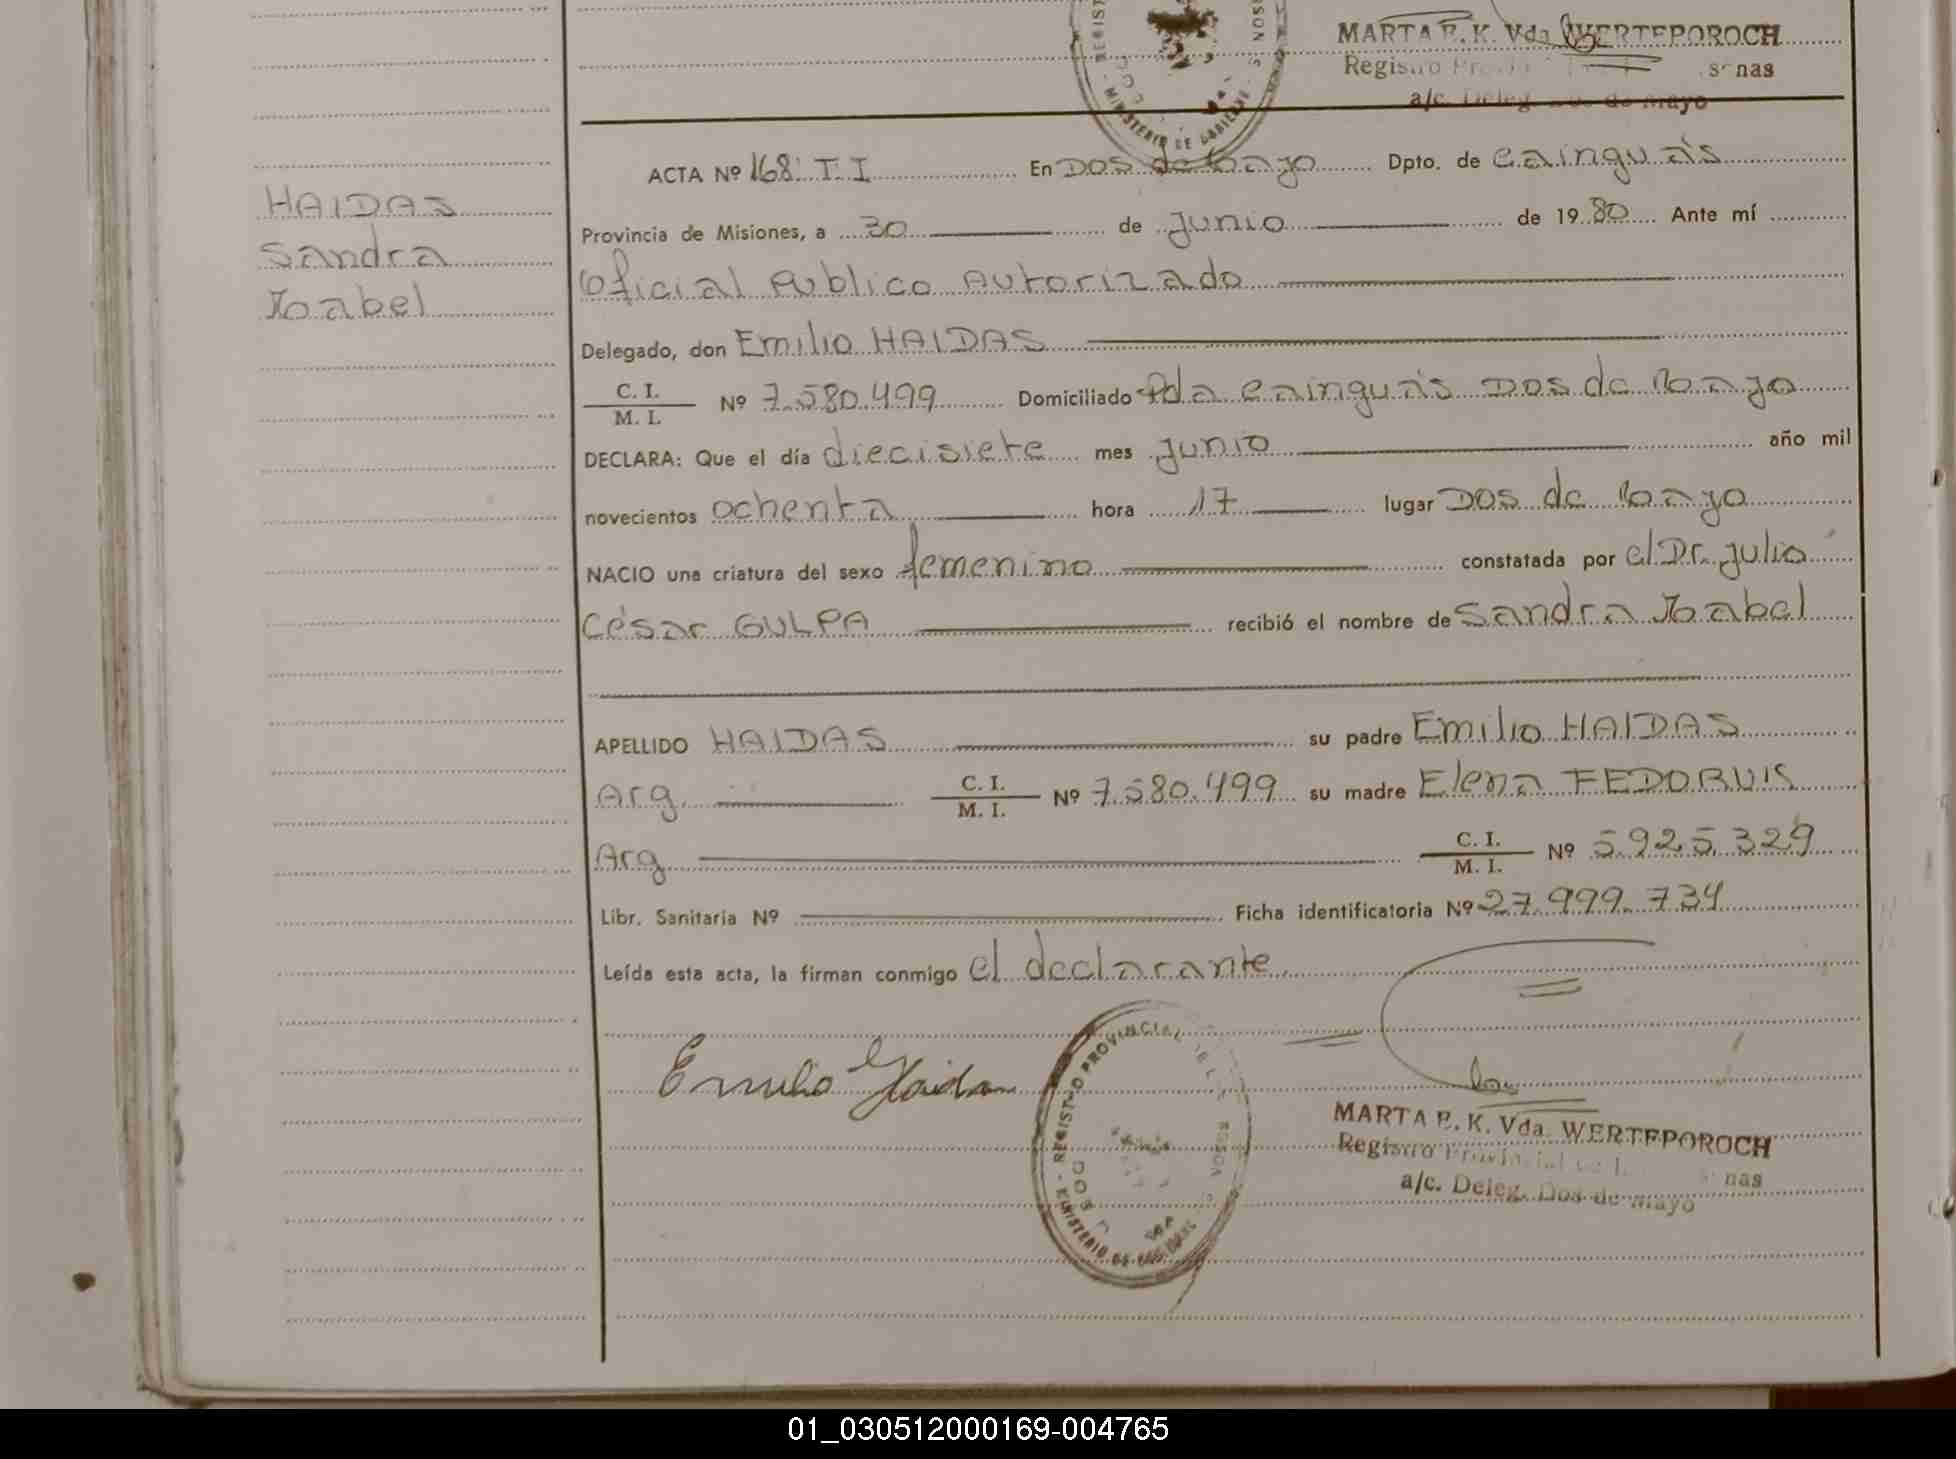 MARTA E. K. Vda. WERTEPOROCH
Registro
a/c. Deleg. Dos de Mayo
ACTA Nº 168: T. I En Dos de Mayo Dpto. de Cainguás
HAIDAS
Sandra
Isabel
Provincia de Misiones, a 30 de Junio de 1980 Ante mí
Oficial Publico Autorizado
Delegado, don Emilio HAIDAS
C. I.
M. I. Nº 7.580.499 Domiciliado Pda Cainguás Dos de Mayo
DECLARA: Que el día diecisiete mes Junio año mil
novecientos ochenta hora 17 lugar Dos de Mayo
NACIO una criatura del sexo femenino constatada por el Dr. Julio
César GULPA recibió el nombre de Sandra Isabel
APELLIDO HAIDAS su padre Emilio HAIDAS
Arg. C. I.
M. I. Nº 7.580.499 su madre Elena FEDORUIS
Arg C. I.
M. I. Nº 5.925.329
Libr. Sanitaria Nº Ficha identificatoria Nº 27.999.734
Leída esta acta, la firman conmigo el declarante
Emilio Haidas
REGISTRO PROVINCIAL DE L
MINISTERIO DE
MARTA E. K. Vda. WERTEPOROCH
Registro Provincial
a/c. Deleg. Dos de Mayo
01_030512000169-004765